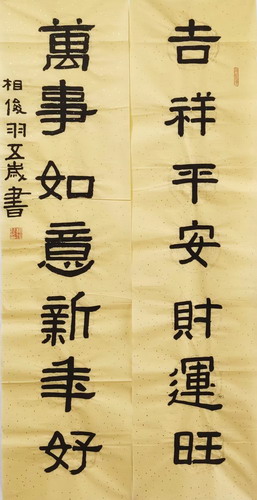 吉祥平安財運旺
萬事如意新年好
相俊羽五歲書